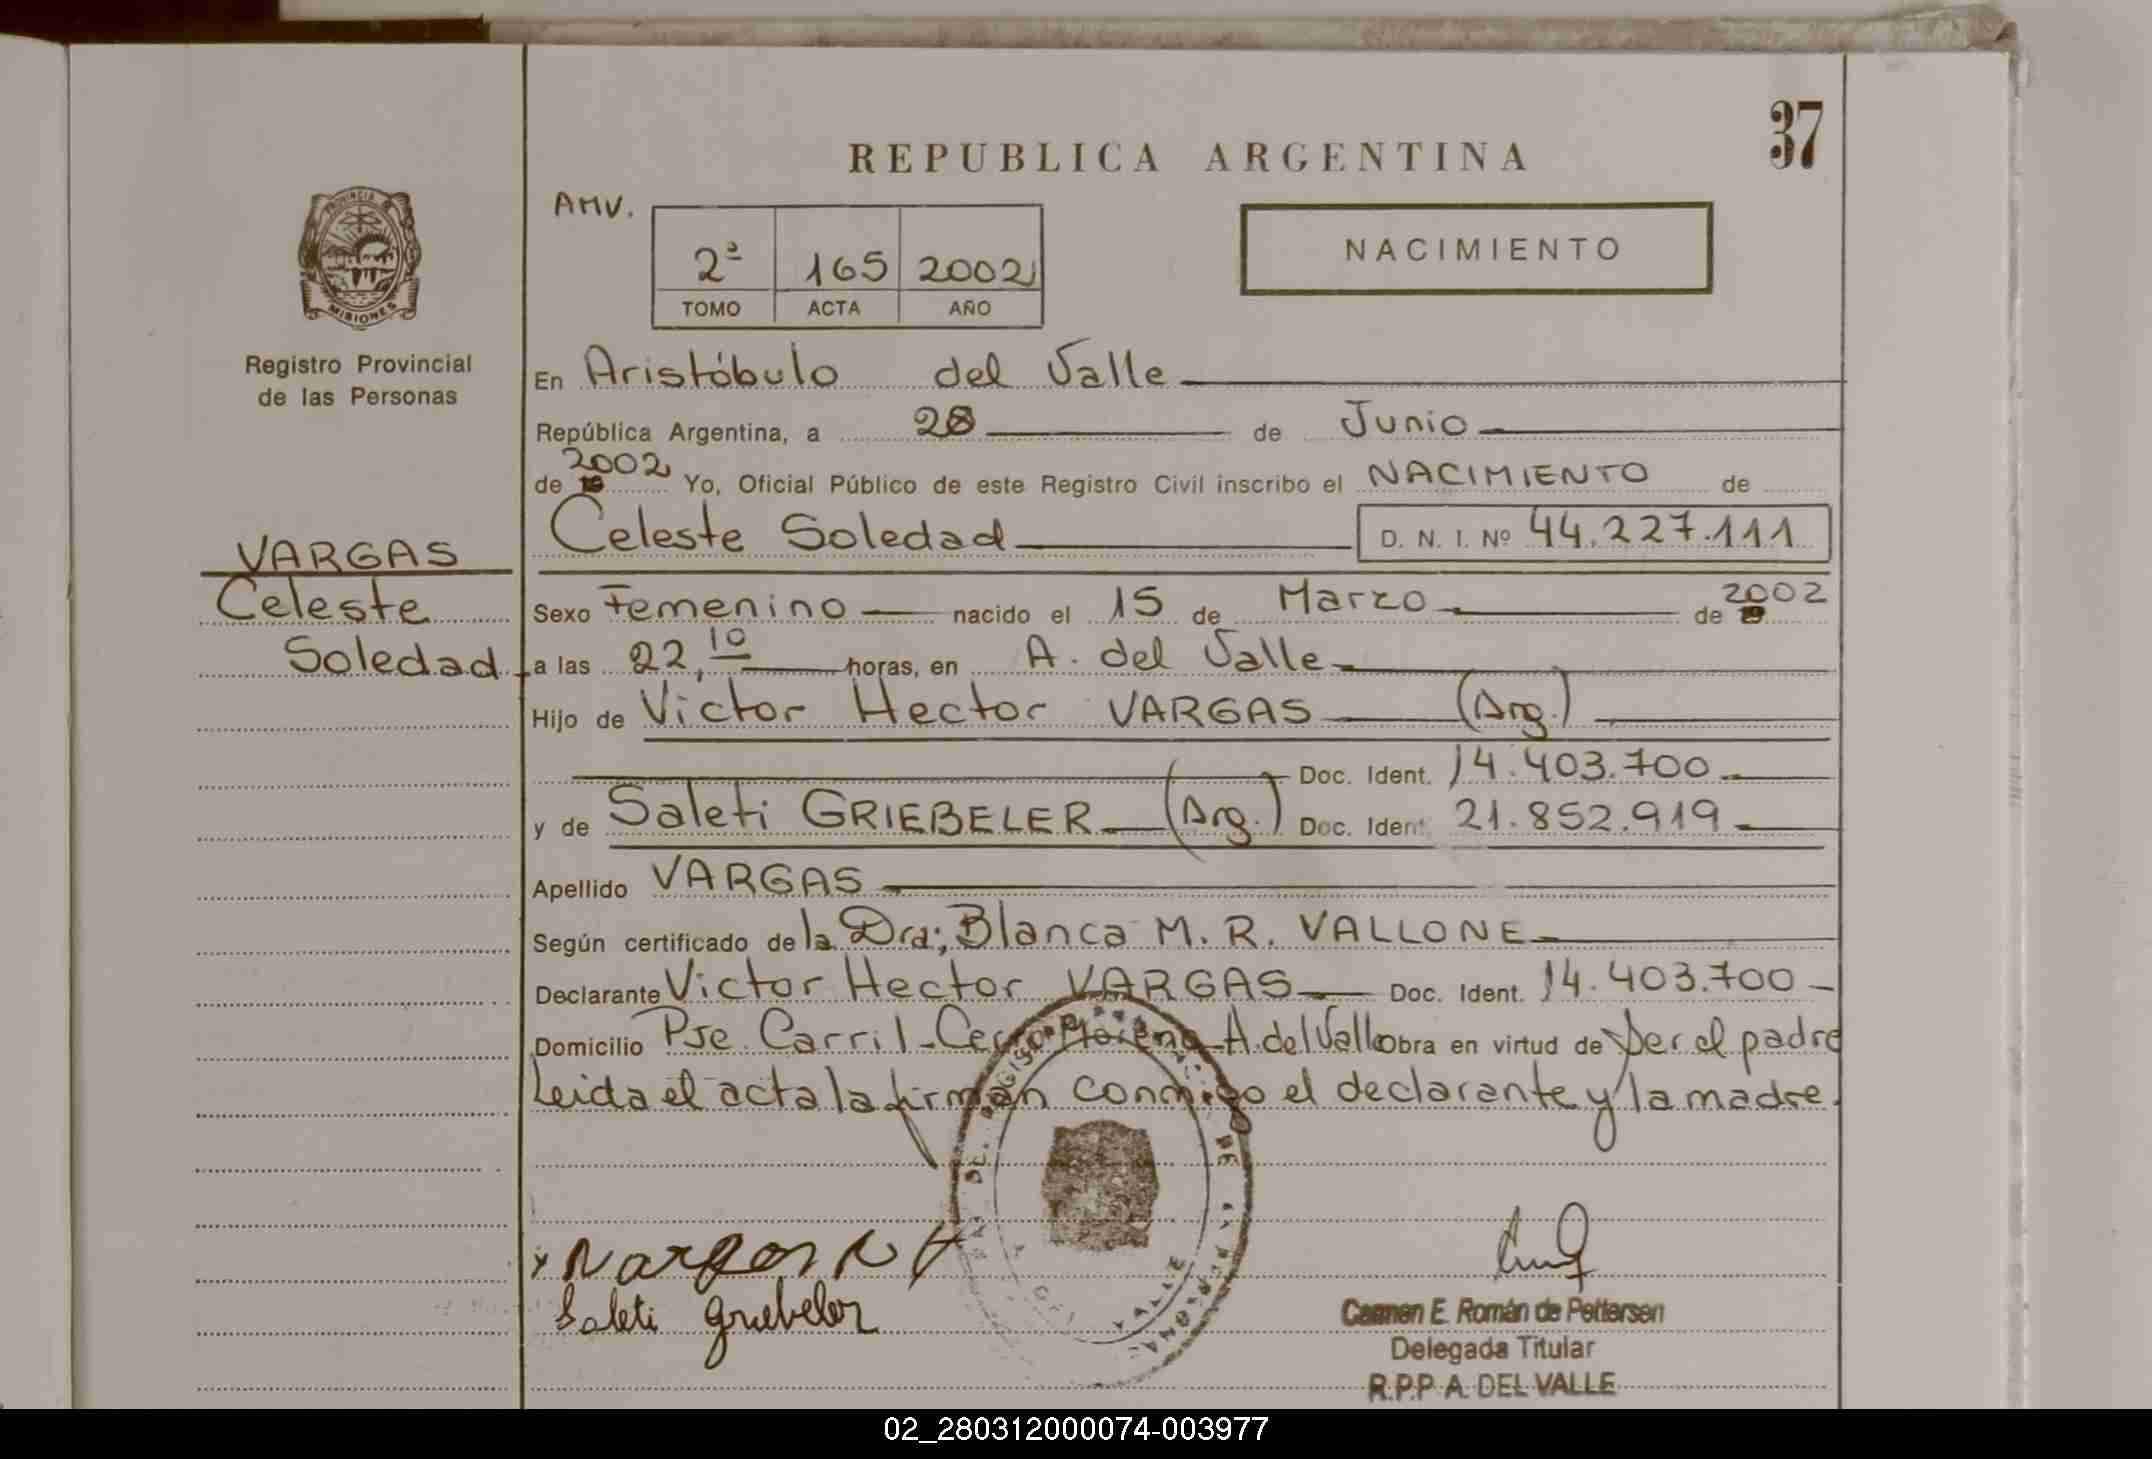 37
REPUBLICA ARGENTINA
PROVINCIA DE
MISIONES
Registro Provincial
de las Personas
AMV.
2ª 165 2002
TOMO ACTA AÑO
NACIMIENTO
En Aristóbulo del Valle
República Argentina, a 28 de Junio
de 19 2002 Yo, Oficial Público de este Registro Civil inscribo el NACIMIENTO de
Celeste Soledad D. N. I. Nº 44.227.111
VARGAS
Celeste
Soledad
Sexo Femenino nacido el 15 de Marzo de 19 2002
a las 22,10 horas, en A. del Valle
Hijo de Victor Hector VARGAS (Arg.)
Doc. Ident. 14.403.700
y de Saleti GRIEBELER (Arg.) Doc. Ident. 21.852.919
Apellido VARGAS
Según certificado de la Dra; Blanca M. R. VALLONE
Declarante Victor Hector VARGAS Doc. Ident. 14.403.700
Domicilio Pje. Carril-Cerro Moreno-A.del Valle obra en virtud de Ser el padre
Leida el acta la firman conmigo el declarante y la madre.
Saleti Griebeler
Carmen E. Román de Pettersen
Delegada Titular
R.P.P A. DEL VALLE
02_280312000074-003977